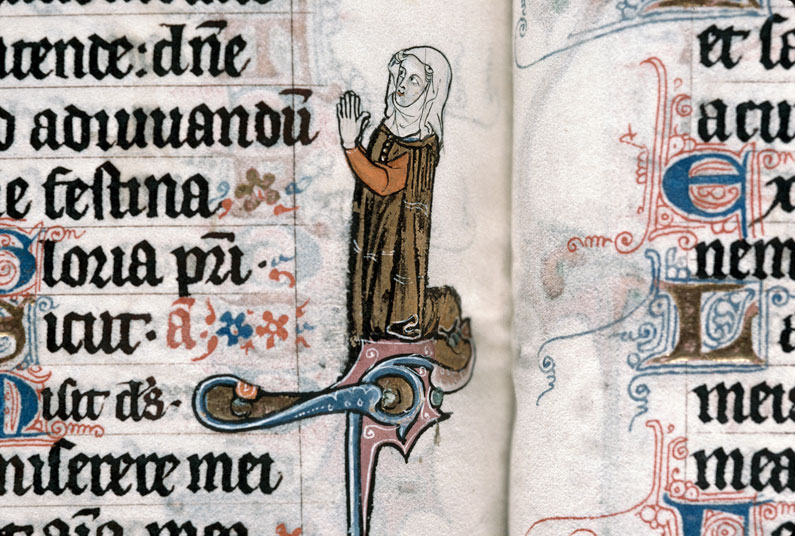 tende: dñe
adiuuandū
e festina
Gloria pr̄i·
Sicut· ā
Misit d̄s·
miserere mei
et sa
acu
Ex
nem
La
meis
mea